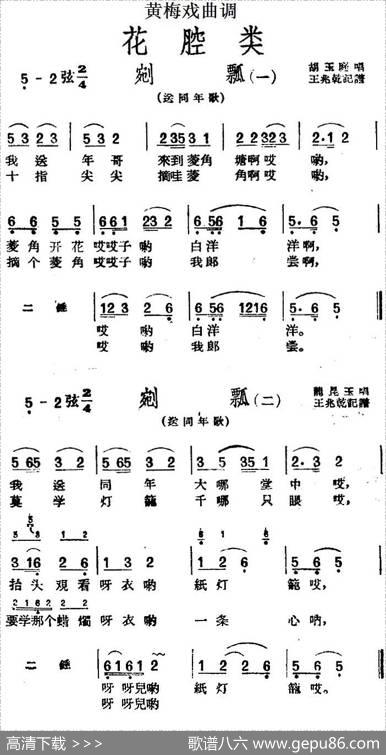 黄梅戏曲调
花腔类
5 - 2弦 2/4 剜 瓢 (一) 胡玉庭唱
王兆乾記譜
(送同年歌)
5 3 2 3 5 5 3 2 3 5 3 1 2 2 3 2 3 2 · 1 2
我送 年哥 來到菱角 塘啊哎 喲,
十指 尖尖 摘哇菱 角啊哎 喲,
6 6 5 5 6 6 1 2 3 2 6 5 6 1 6 5 · 6 5
菱角开花 哎哎子喲 白洋 洋啊,
摘个菱角 哎哎子喲 我郎 尝啊,
二 錘 1 2 3 2 6 6 5 6 1 2 1 6 5 · 6 5
哎 喲 白洋 洋。
哎 喲 我郎 尝。
5 - 2弦 2/4 剜 瓢 (二) 龍昆玉唱
王兆乾記譜
(送同年歌)
5 6 5 3 2 5 3 5 3 2 3 5 3 5 1 2 · 3 2
我送 同年 大哪堂 中哎,
莫学 灯籠 千哪只 眼哎,
3 1 6 2 6 5 6 1 2 1 2 6 5 6 5
抬头观看 呀衣喲 紙灯 籠哎,
2 1 6 2 1 2 2
要学那个蜡燭 呀衣喲 一条 心吶,
二 錘 6 1 6 1 2 1 2 2 6 5 · 6 5
呀呀兒喲 紙灯 籠哎。
呀呀兒喲
高清下载 >>> 歌谱八六 www.gepu86.com